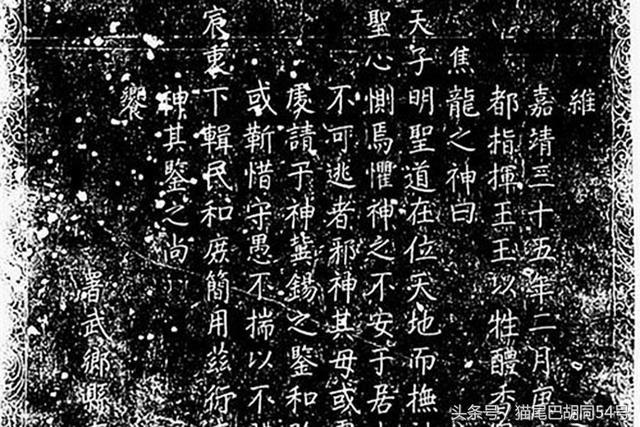 維
嘉靖三十五年二月庚
都指揮王王以牲醴
焦龍之神曰
天子明聖道在位天地而撫
聖心惻焉懼神之不安于居
不可逃者邪神其毋或
虔請于神冀錫之鑒和
或靳惜守愚不揣以不
宸衷下輯民和庶簡用茲行
神其鑒之尚
饗
署武鄉縣
头条号 / 猫尾巴胡同54号